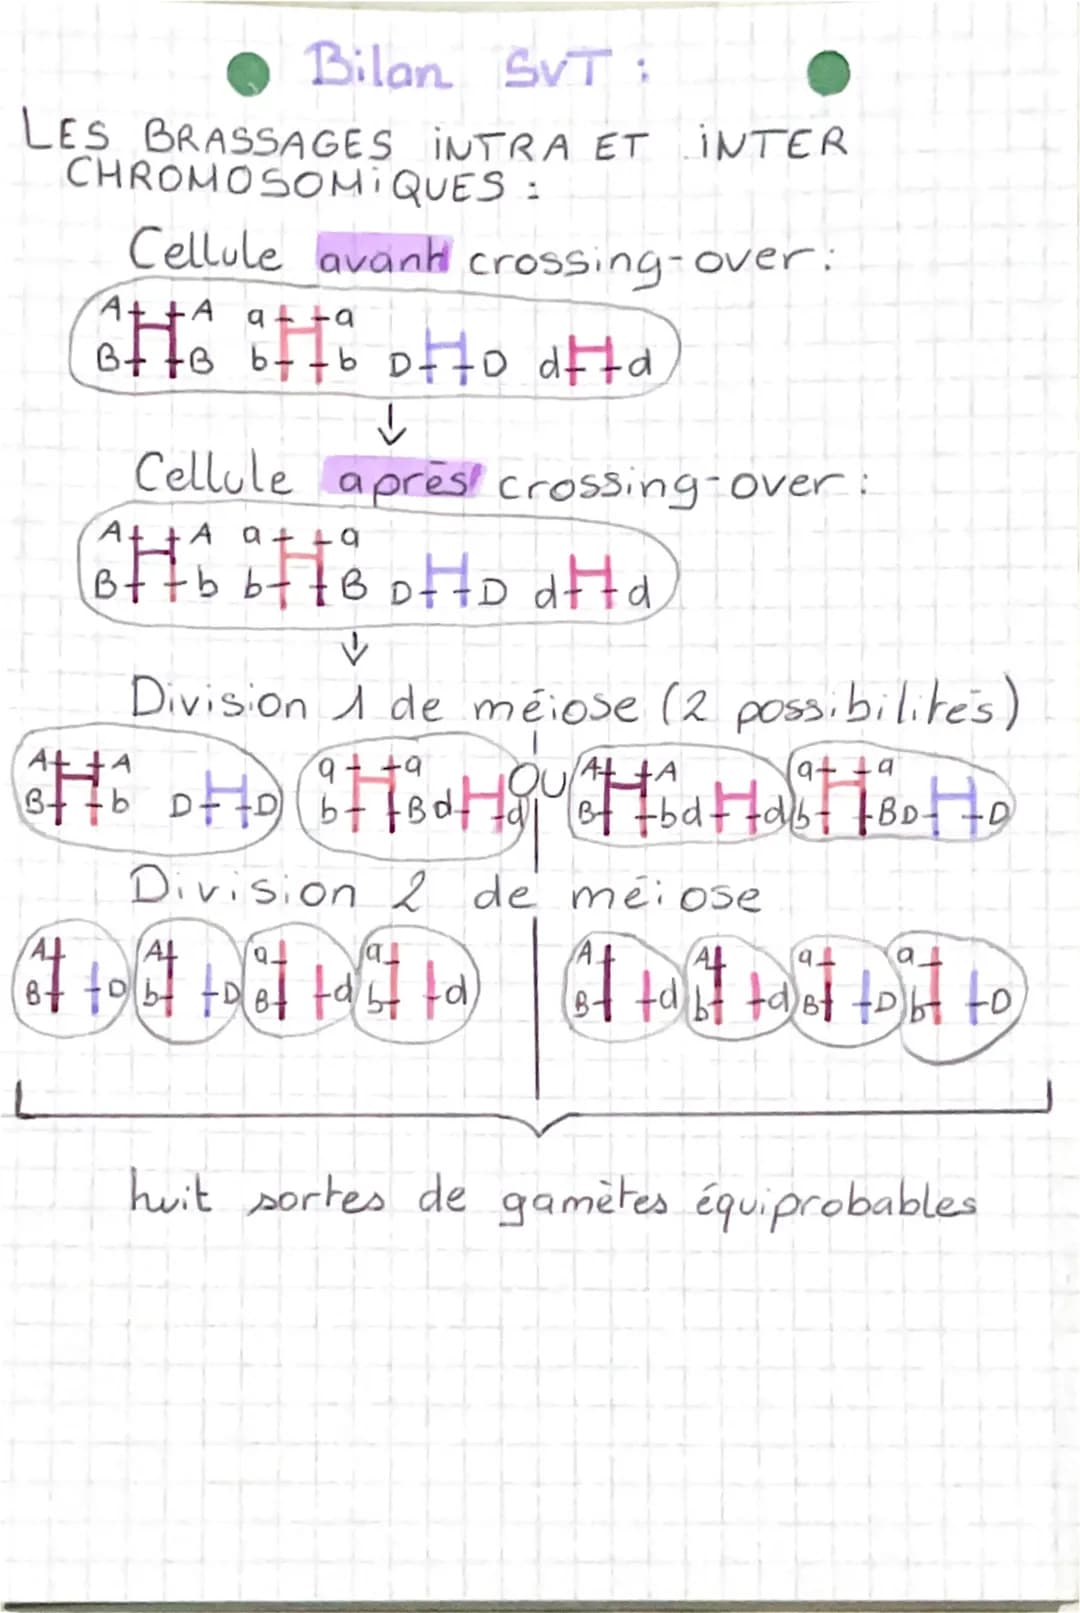 Bilan SVT :
LES BRASSAGES iNTRA ET iNTER
CHROMOSOMiQUES :
Cellule avant crossing-over :
A A a a
B B b b D D d d
Cellule après crossing-over :
A A a a
B b b B D D d d
Division 1 de méiose (2 possibilités)
A A a a OU A A a a
B b D D b B d d B b d d b B D D
Division 2 de méiose
A A a a A A a a
B D b D B d b d B d b d B D b D
huit sortes de gamètes équiprobables